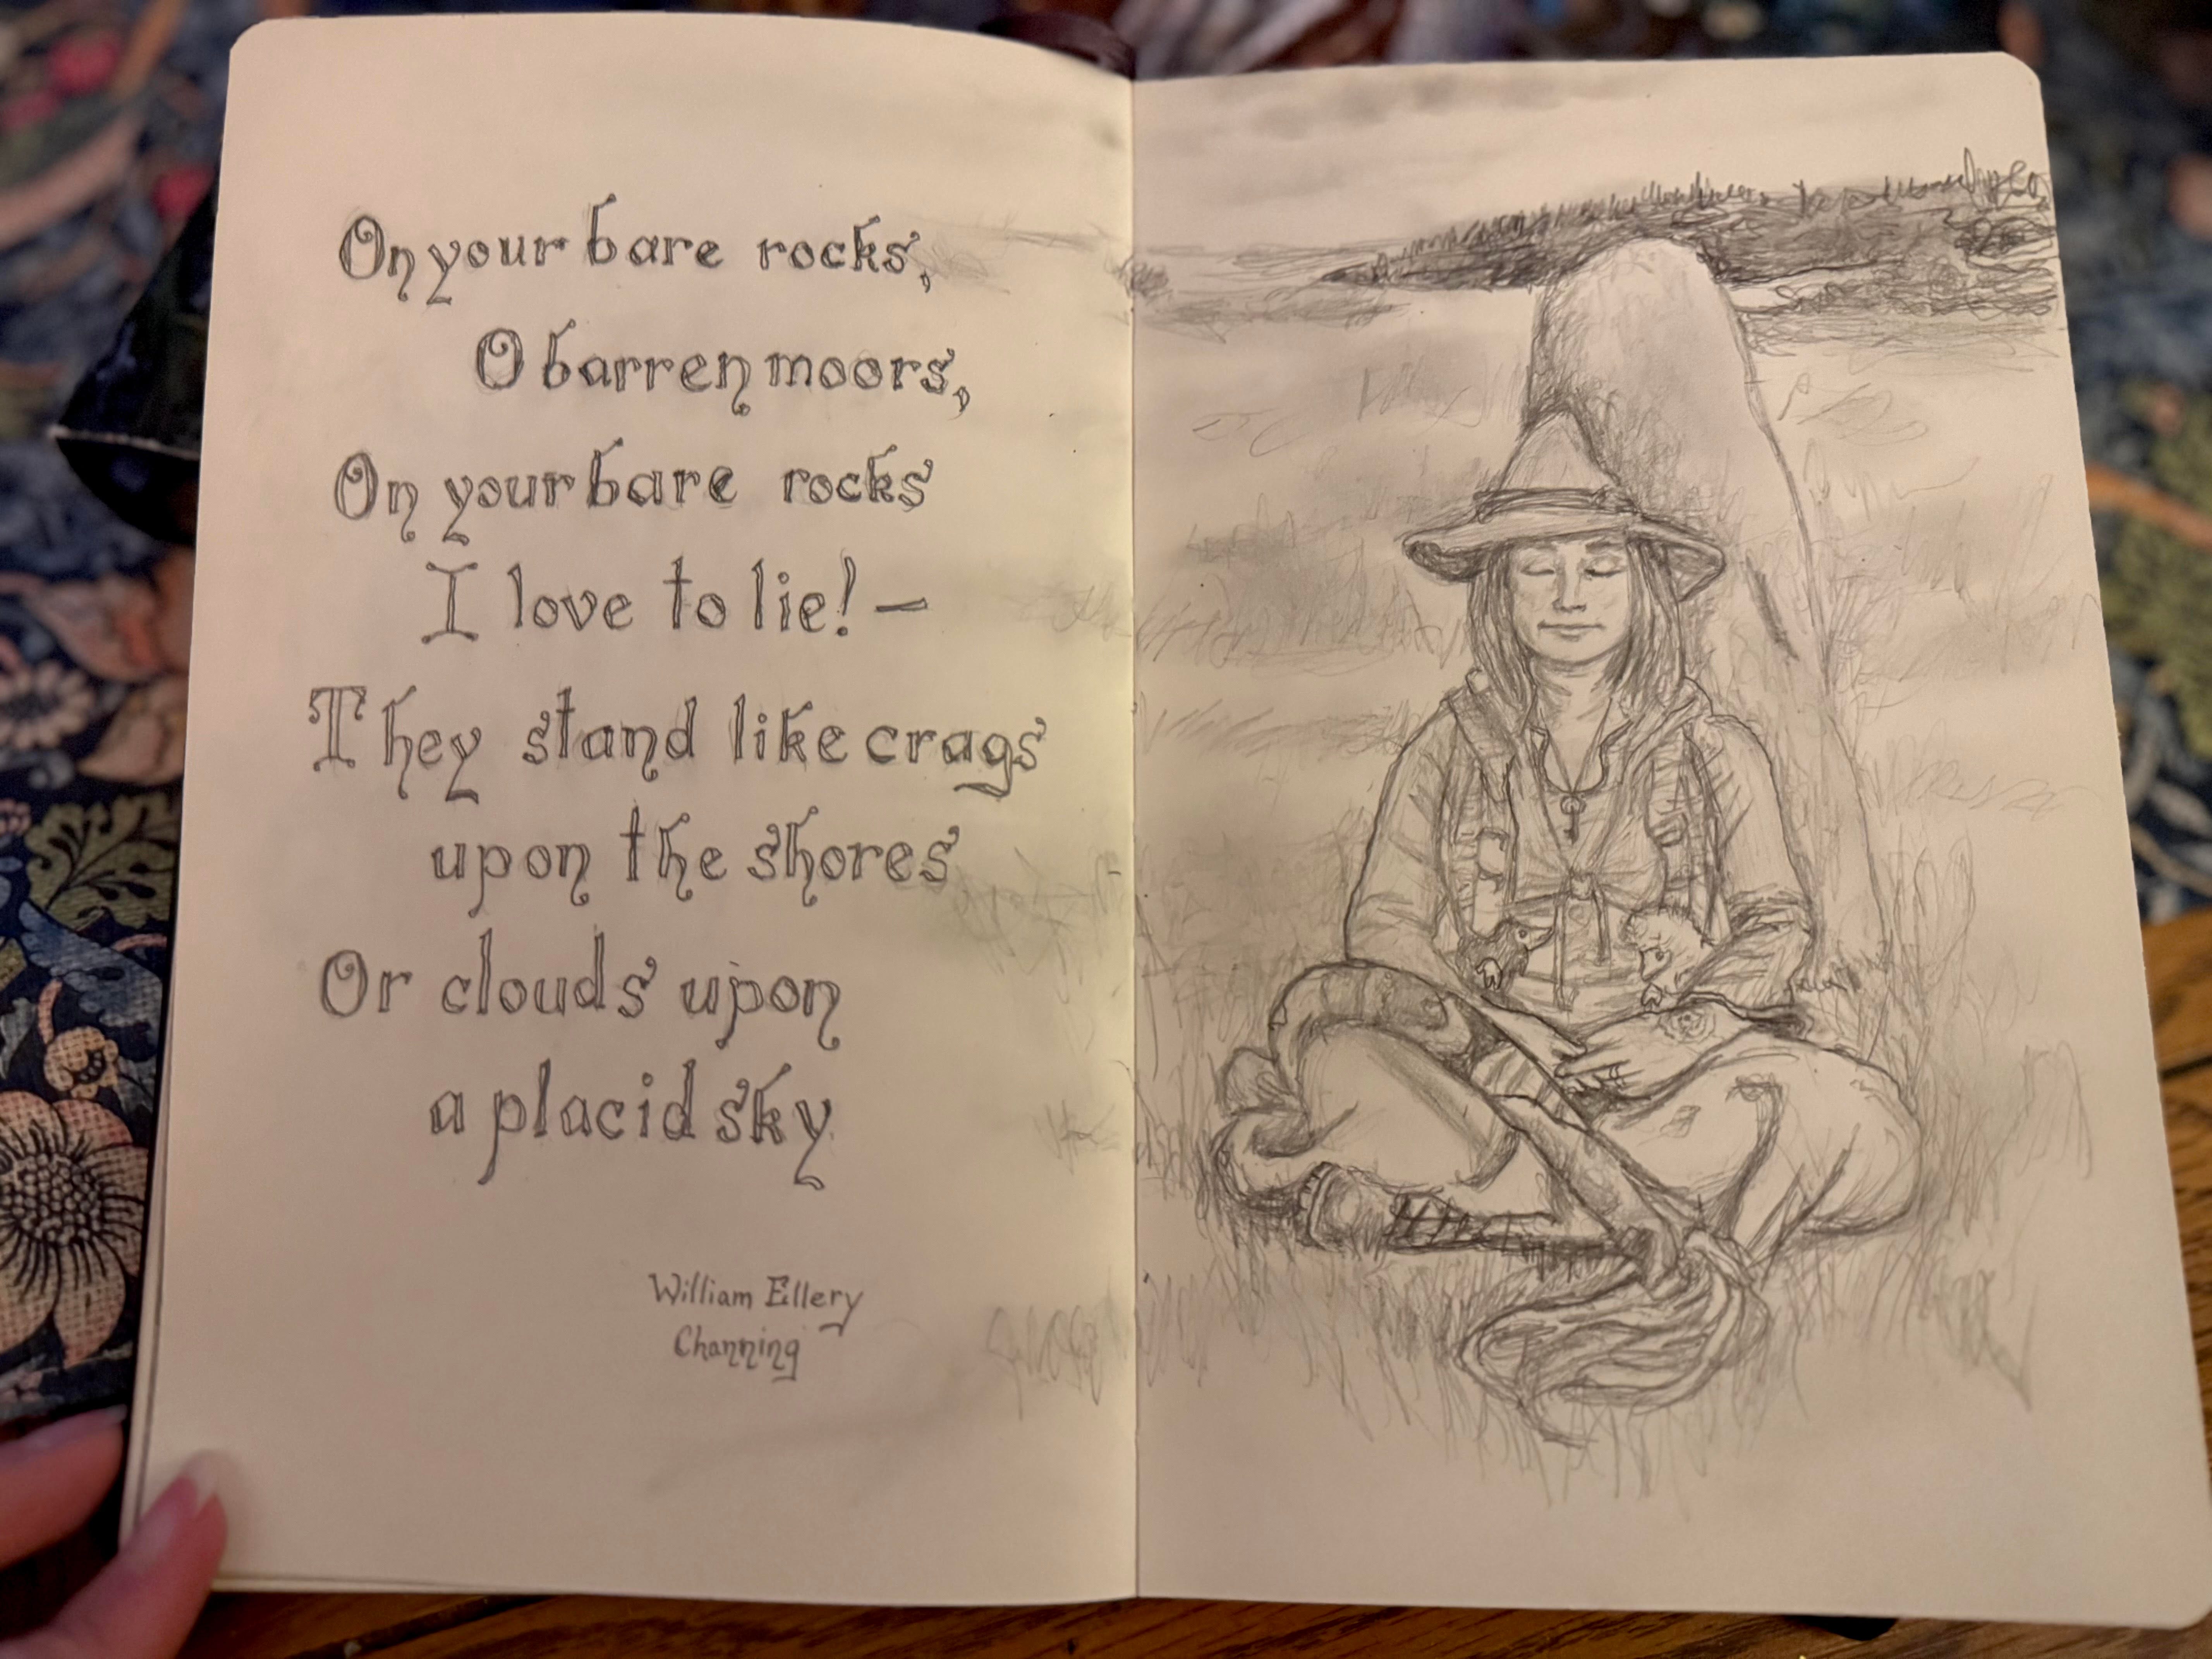 On your bare rocks,
O barren moors,
On your bare rocks
I love to lie! —
They stand like crags
upon the shores
Or clouds upon
a placid sky
William Ellery
Channing